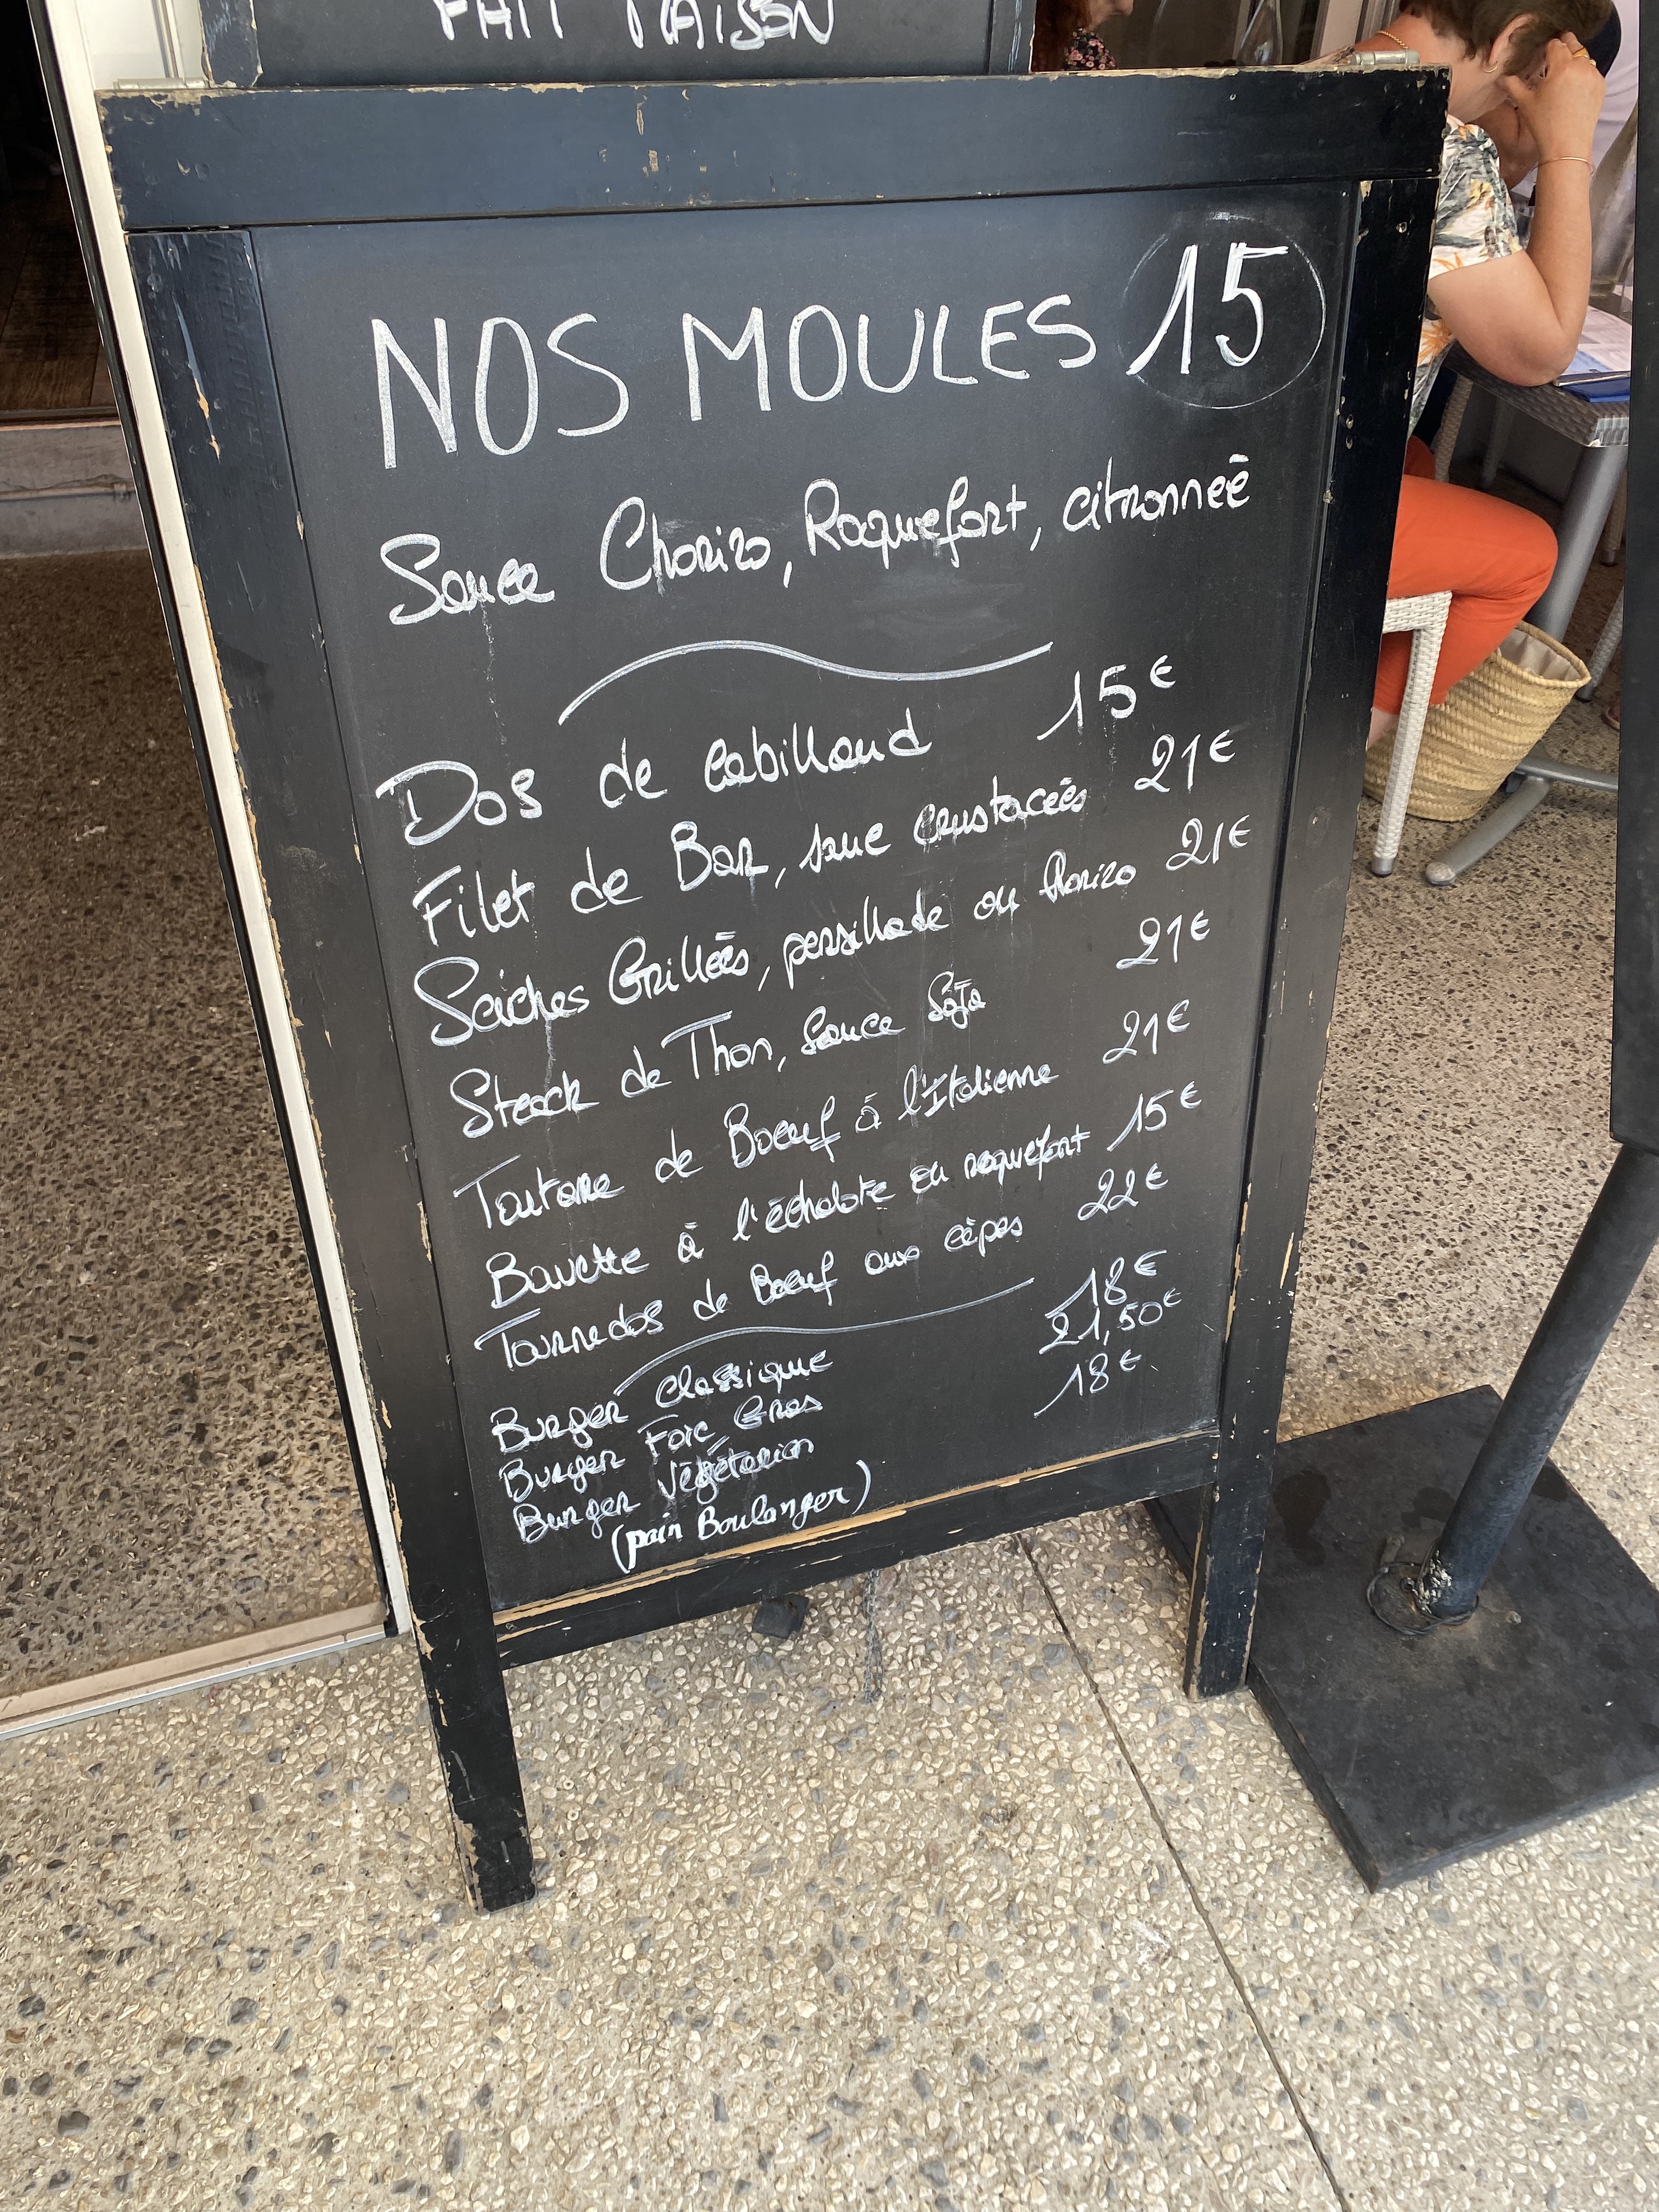 FAIT MAISON
NOS MOULES 15
Sauce Chorizo, Roquefort, citronnée
Dos de cabillaud 15€
Filet de Bar, sauce crustacés 21€
Seiches Grillées, persillade ou Chorizo 21€
Steack de Thon, Sauce Soja 21€
Tartare de Boeuf à l'Italienne 21€
Bavette à l'échalote ou roquefort 15€
Tournedos de Boeuf aux cèpes 22€
Burger Classique 18€
Burger Foie Gras 21,50€
Burger Végétarien 18€
(pain Boulanger)